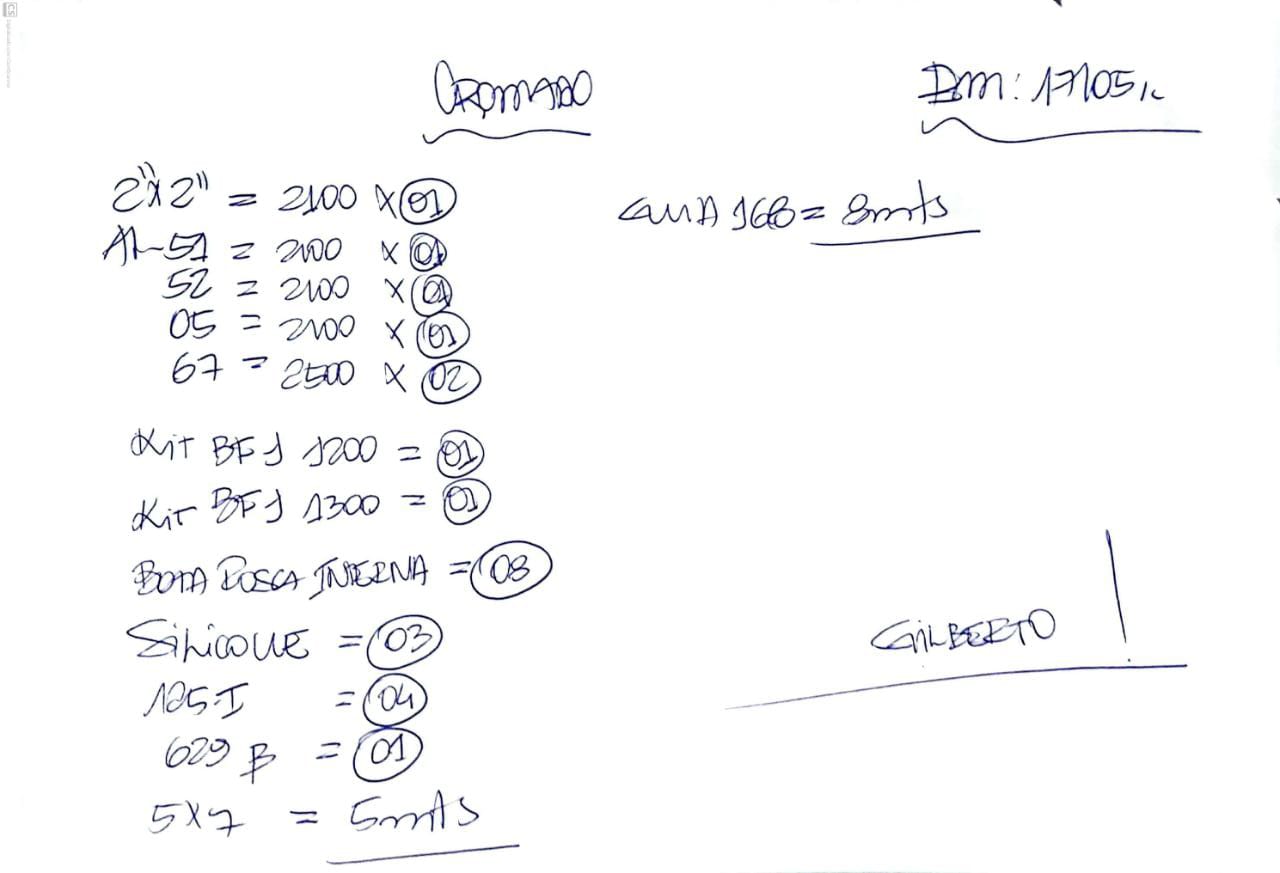 CROMADO
2"x2" = 2100 x 01
AL-51 = 2100 x 01
52 = 2100 x 01
05 = 2100 x 01
67 = 2500 x 02
Kit BF1 1200 = 01
Kit BF1 1300 = 01
BOTA ROSCA INTERNA = 08
SiLiCONE = 03
125-I = 04
629 B = 01
5x7 = 5mts
168 = 8mts
GiLBERTO